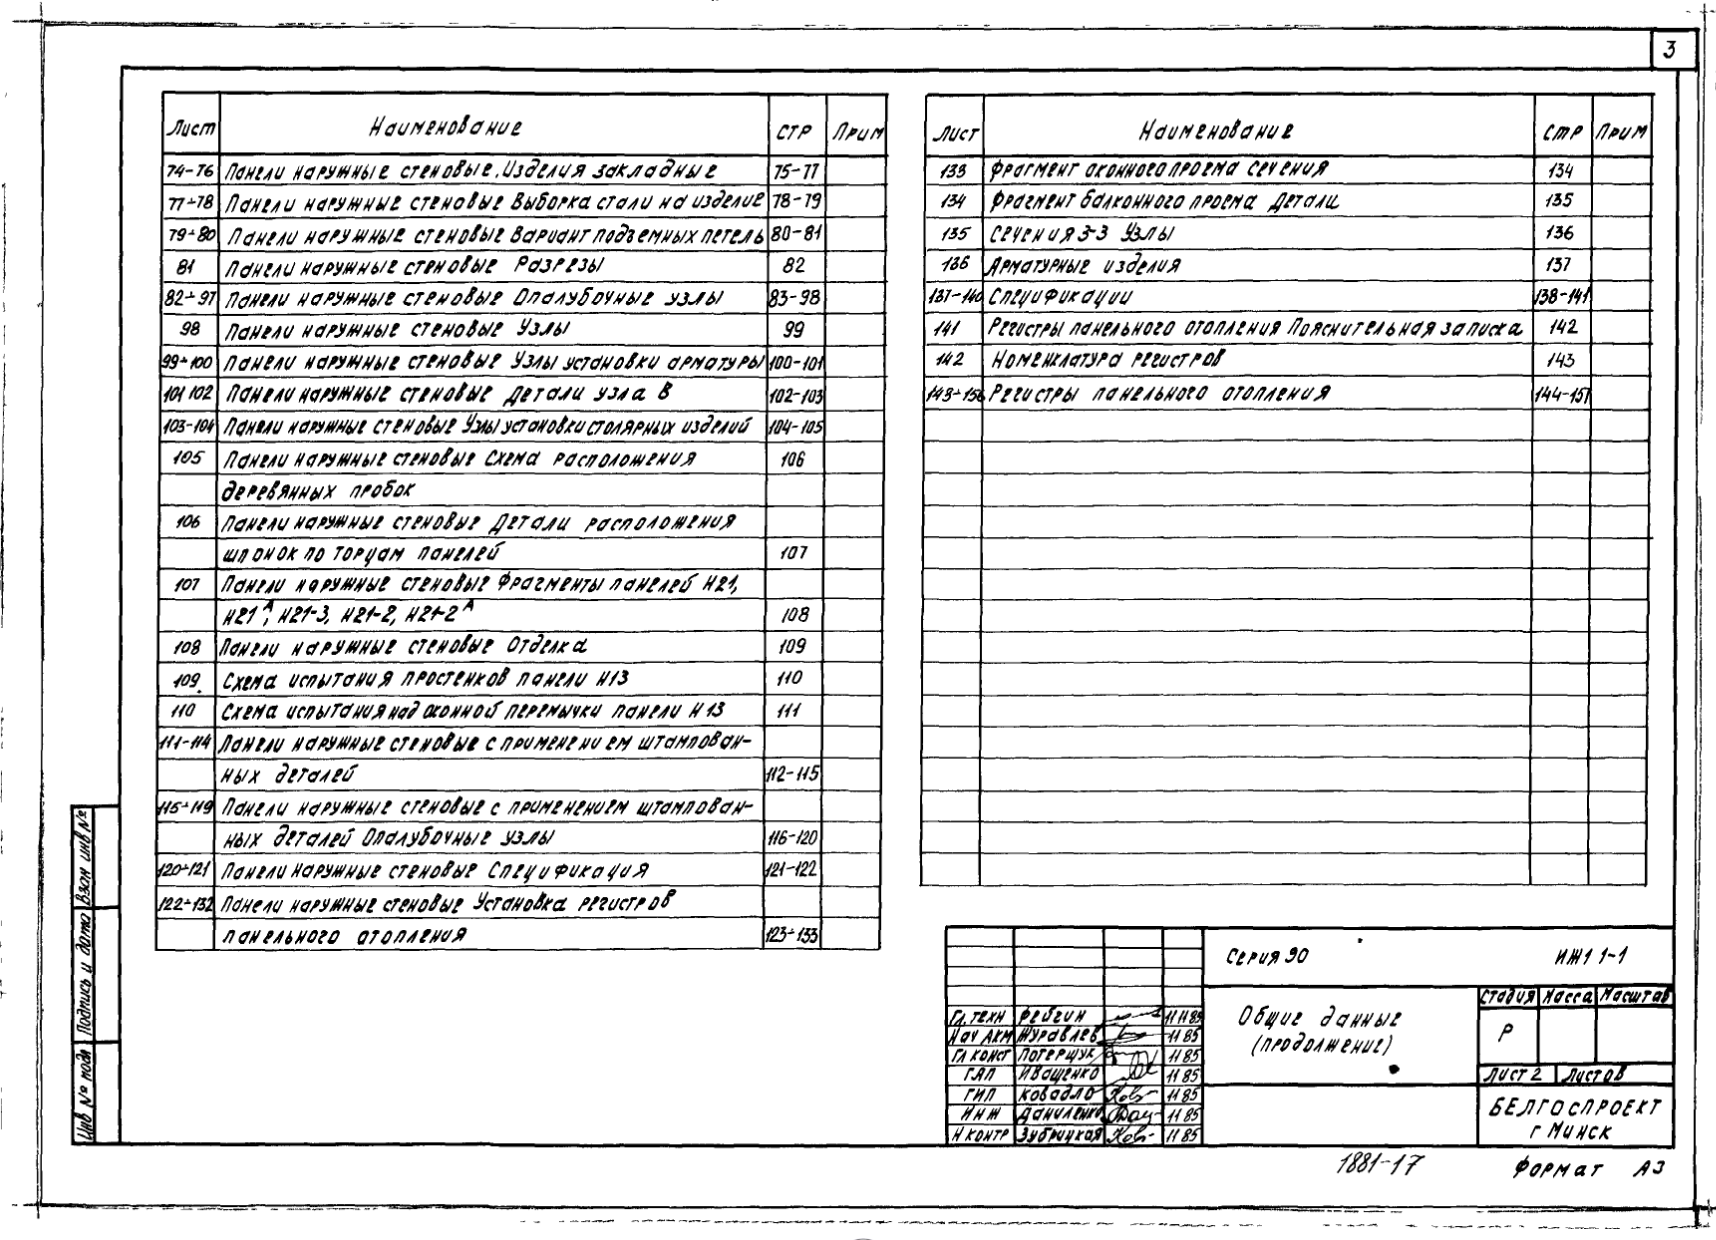 3
Лист Наименование СТР Прим
74-76 Панели наружные стеновые. Изделия закладные 75-77
77÷78 Панели наружные стеновые Выборка стали на изделие 78-79
79÷80 Панели наружные стеновые Вариант подъемных петель 80-81
81 Панели наружные стеновые Разрезы 82
82÷97 Панели наружные стеновые Опалубочные узлы 83-98
98 Панели наружные стеновые Узлы 99
99÷100 Панели наружные стеновые Узлы установки арматуры 100-101
101 102 Панели наружные стеновые Детали узла В 102-103
103-104 Панели наружные стеновые Узлы установки столярных изделий 104-105
105 Панели наружные стеновые Схема расположения 106
деревянных пробок
106 Панели наружные стеновые Детали расположения
шпонок по торцам панелей 107
107 Панели наружные стеновые Фрагменты панелей Н21,
Н21ᴬ, Н21-3, Н21-2, Н21-2ᴬ 108
108 Панели наружные стеновые Отделка 109
109. Схема испытания простенков панели Н13 110
110 Схема испытания надоконной перемычки панели Н13 111
111-114 Панели наружные стеновые с применением штампован-
ных деталей 112-115
115÷119 Панели наружные стеновые с применением штампован-
ных деталей Опалубочные узлы 116-120
120÷121 Панели наружные стеновые Спецификация 121-122
122÷132 Панели наружные стеновые Установка регистров
панельного отопления 123÷133
Лист Наименование Стр Прим
133 Фрагмент оконного проема Сечения 134
134 Фрагмент балконного проема Детали 135
135 Сечения 3-3 Узлы 136
136 Арматурные изделия 137
137-140 Спецификации 138-141
141 Регистры панельного отопления Пояснительная записка 142
142 Номенклатура регистров 143
143÷156 Регистры панельного отопления 144-157
Взам инв №
Подпись и дата
Инв № подл
Серия 90 ИЖ1 1-1
Общие данные
(продолжение)
Стадия Масса Масштаб
Р
Лист 2 Листов
БЕЛГОСПРОЕКТ
г Минск
Гл. техн Фейгин 11 11 85
Нач АКМ Журавлев 11 85
Гл конст Потерщук 11 85
ГАП Иващенко 11 85
ГИП Ковадло 11 85
Инж Даниленко 11 85
Н контр Зубрицкая 11 85
1881-17 Формат А3